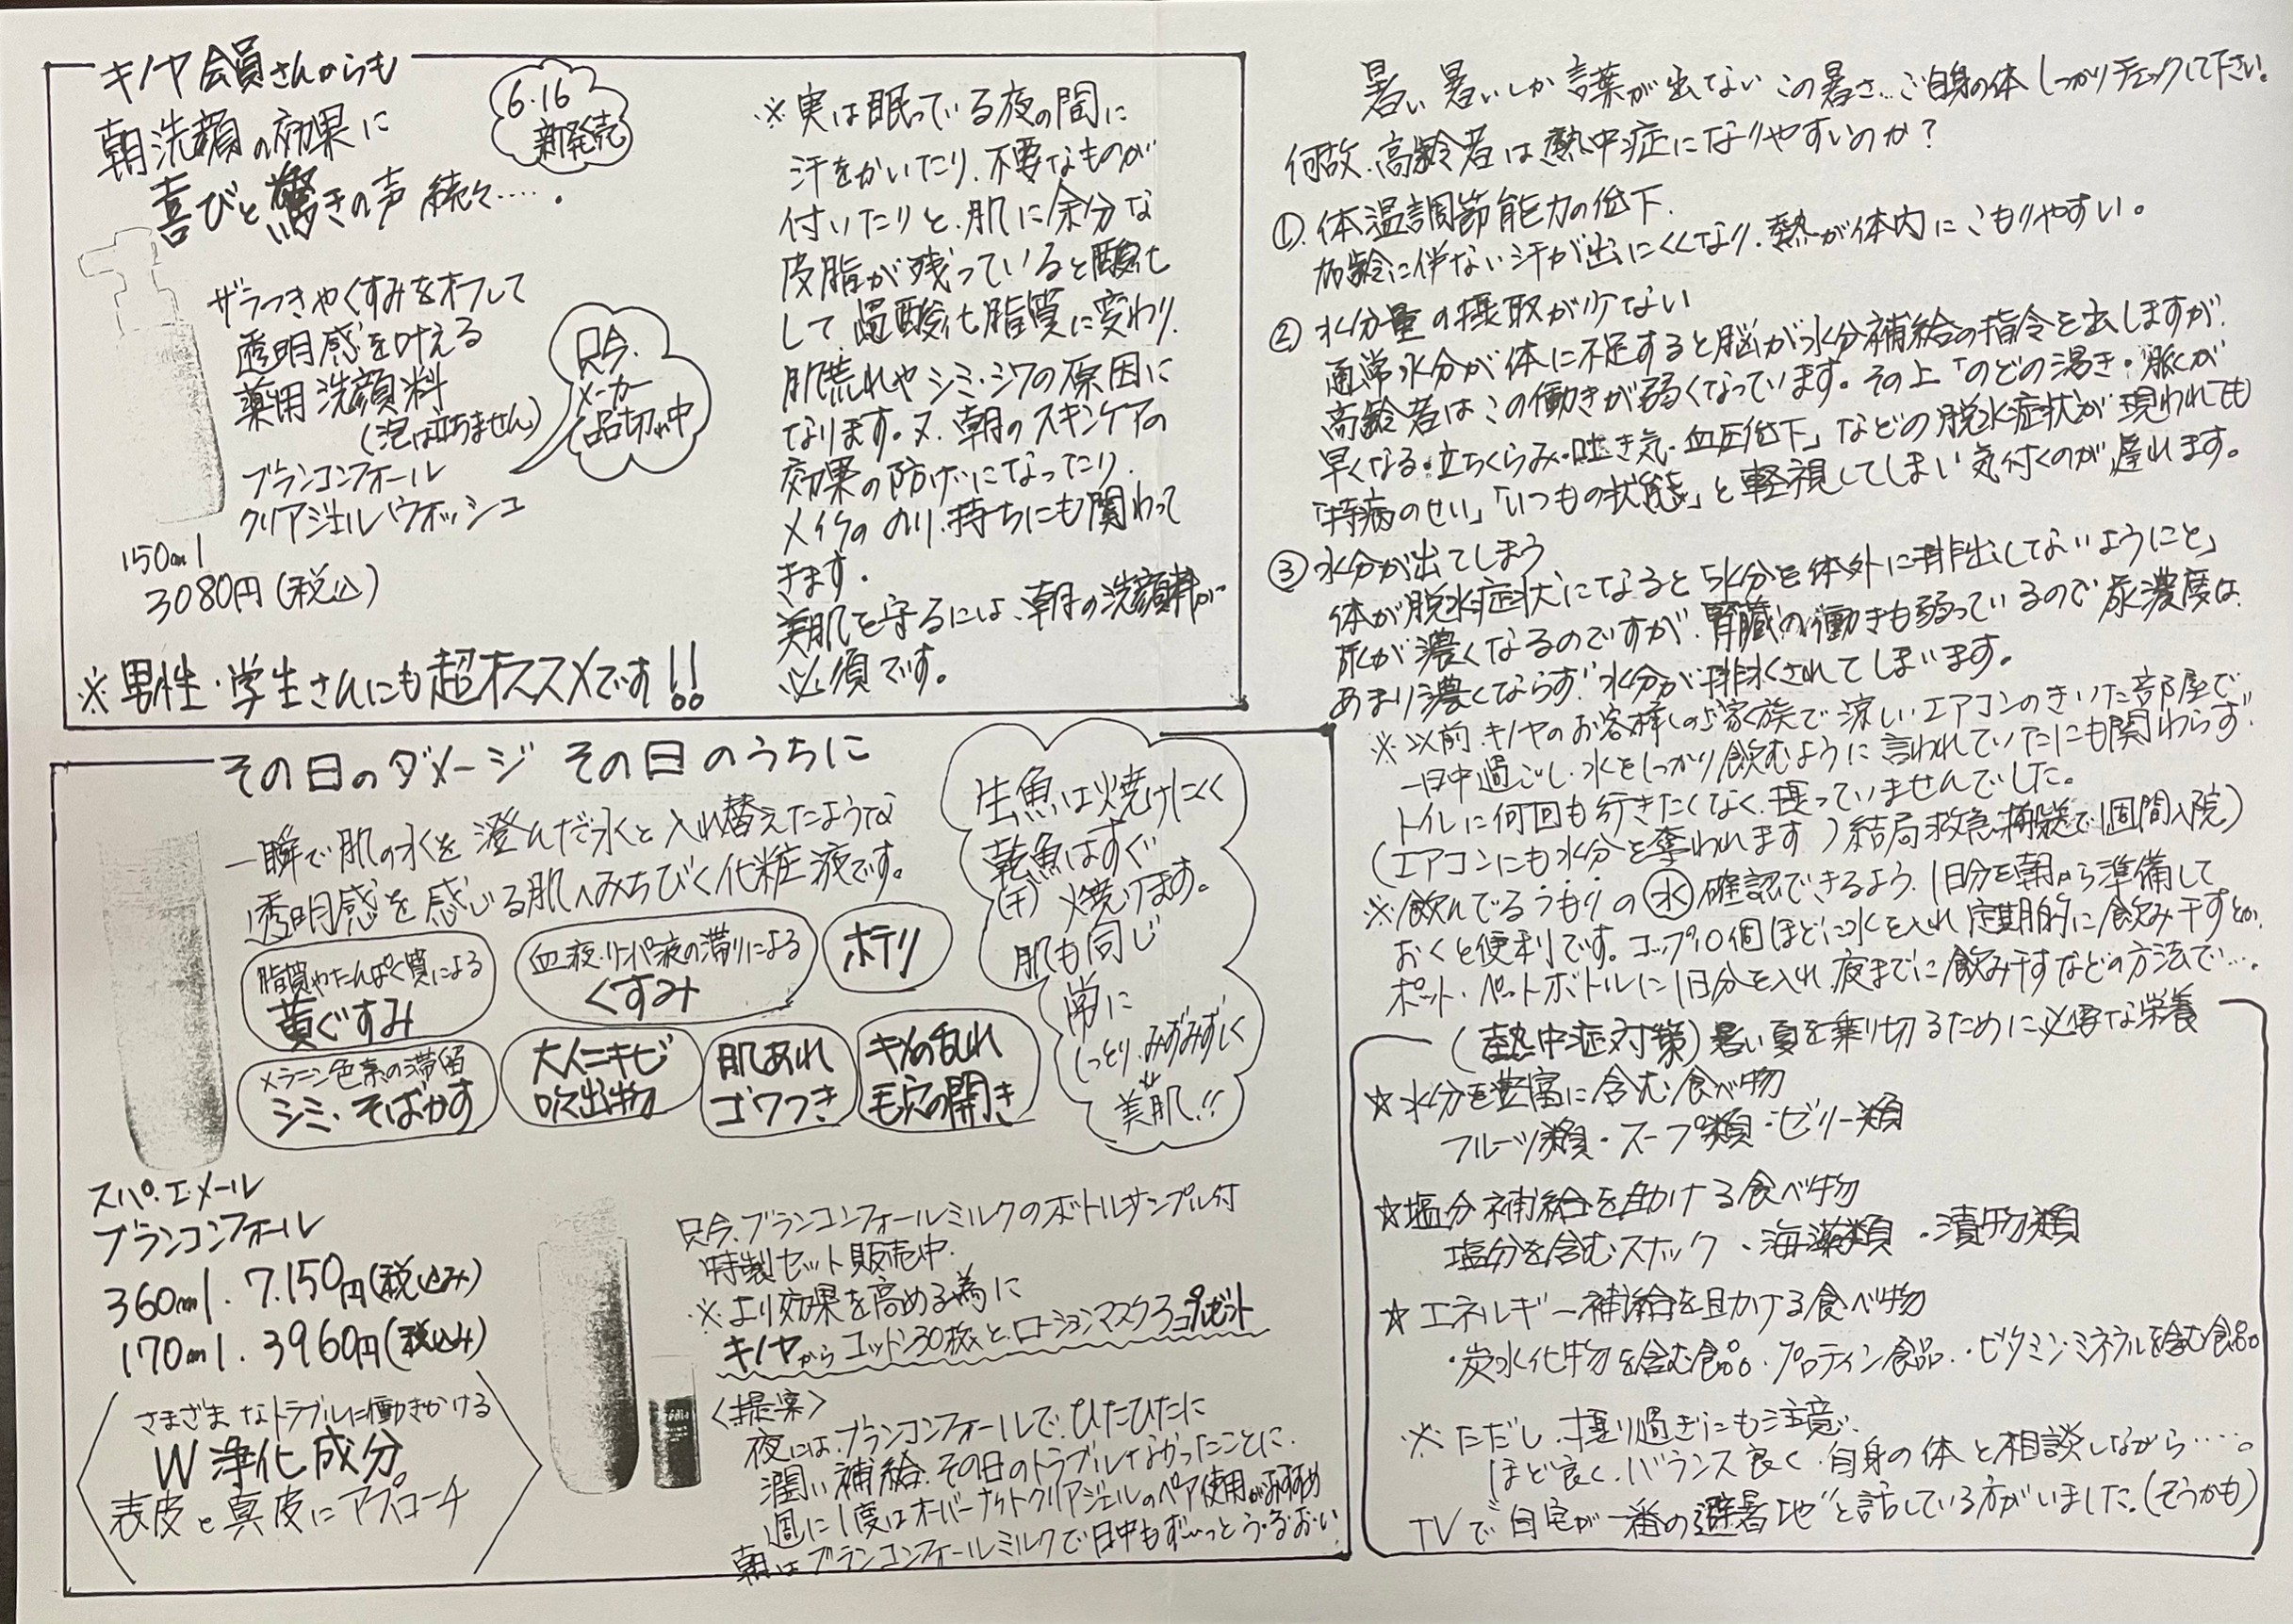 キノヤ会員さんからも
朝洗顔の効果に
喜びと驚きの声続々‥‥.
6.16
新発売
ザラつきやくすみをオフして
透明感を叶える
薬用洗顔料
(泡は立ちません)
ブランコンフォール
クリアジェルウォッシュ
只今.
メーカー
品切れ中
150ml
3080円(税込)
※男性・学生さんにも超オススメです!!
※実は眠っている夜の間に
汗をかいたり、不要なものが
付いたりと、肌に余分な
皮脂が残っていると酸化
して、過酸化脂質に変わり、
肌荒れやシミ・シワの原因に
なります。又、朝のスキンケアの
効果の防げになったり、
メイクののり、持ちにも関わって
きます。
美肌を守るには、朝の洗顔料が
必須です。
その日のダメージ その日のうちに
一瞬で肌の水を澄んだ水と入れ替えたような
透明感を感じる肌へみちびく化粧液です。
脂質やたんぱく質による
黄ぐすみ
血液・リンパ液の滞りによる
くすみ
ホテリ
メラニン色素の滞留
シミ・そばかす
大人ニキビ
吹出物
肌あれ
ゴワつき
キメの乱れ
毛穴の開き
生魚は焼けにくく
乾魚はすぐ
(干) 焼けます。
肌も同じ
常に
しっとり、みずみずしく
美肌!!
スパ・エ・メール
ブランコンフォール
360ml. 7.150円(税込み)
170ml. 3960円(税込み)
さまざまなトラブルに働きかける
W浄化成分
表皮と真皮にアプローチ
只今、ブランコンフォールミルクのボトルサンプル付
特製セット販売中.
※より効果を高める為に
キノヤからコットン30枚と、ローションマスク3コプレゼント
<提案>
夜には、ブランコンフォールで、ひたひたに
潤い補給、その日のトラブルはなかったことに、
週に1度はオーバーナイトクリアジェルのペア使用がおすすめ
朝はブランコンフォールミルクで日中もず〜っとう・る・お・い
暑い暑いしか言葉が出てないこの暑さ‥ご自身の体しっかりチェックして下さい。
何故、高齢者は熱中症になりやすいのか?
①.体温調節能力の低下.
加齢に伴ない汗が出にくくなり、熱が体内にこもりやすい。
②水分量の摂取が少ない
通常水分が体に不足すると脳が水分補給の指令を出しますが、
高齢者はこの働きが弱くなっています。その上「のどの渇き・脈が
早くなる・立ちくらみ・吐き気・血圧低下」などの脱水症状が現われても
「持病のせい」「いつもの状態」と軽視してしまい気付くのが遅れます。
③水分が出てしまう
体が脱水症状になると「水分を体外に排出してないようにと」
尿が濃くなるのですが、腎臓の働きも弱っているので尿濃度は、
あまり濃くならず、水分が排水されてしまいます。
※以前、キノヤのお客様のご家族で涼しいエアコンのきいた部屋で
一日中過ごし、水をしっかり飲むように言われていたにも関わらず、
トイレに何回も行きたくなく、摂っていませんでした。
(エアコンにも水分を奪われます)結局救急搬送で1週間入院)
※飲んでるつもりの水確認できるよう、1日分を朝から準備して
おくと便利です。コップ10個ほどに水を入れ定期的に飲み干すとか、
ポット・ペットボトルに1日分を入れ夜までに飲み干すなどの方法で‥‥.
(熱中症対策)暑い夏を乗り切るために必要な栄養
☆水分を豊富に含む食べ物
フルーツ類・スープ類・ゼリー類
☆塩分補給を助ける食べ物
塩分を含むスナック・海藻類・漬物類
☆エネルギー補給を助ける食べ物
・炭水化物を含む食品・プロテイン食品・ビタミン・ミネラルを含む食品
※ただし、摂り過ぎにも注意、
ほど良く、バランス良く、自身の体と相談しながら‥‥。
TVで"自宅が一番の避暑地"と話している方がいました。(そうかも)